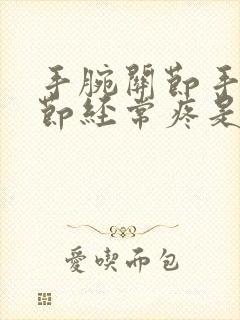 手腕關節手
節經常疼是
愛喫而包